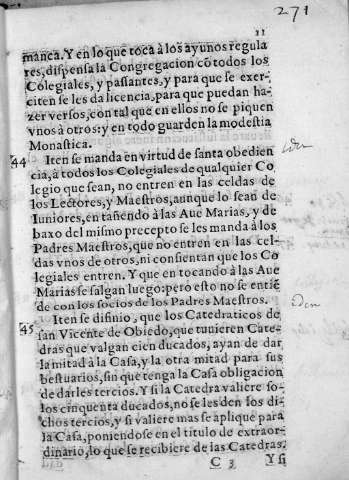 271
11
manca. Y en lo que toca à los ayunos regula
res, dispensa la Congregacion cõ todos los
Colegiales, y passantes, y para que se exer-
citen se les da licencia, para que puedan ha-
zer versos, con tal que en ellos no se piquen
vnos à otros: y en todo guarden la modestia
Monastica.
44 Iten se manda en virtud de santa obedien
cia, à todos los Colegiales de qualquier Co
legio que sean, no entren en las celdas de
los Lectores, y Maestros, aunque lo sean de
Iuniores, en tañendo à las Aue Marias, y de
baxo del mismo precepto se les manda à los
Padres Maestros, que no entren en las cel-
das vnos de otros, ni consientan que los Co
legiales entren. Y que en tocando à las Aue
Marias se salgan luego: pero esto no se entiẽ
de con los socios de los Padres Maestros.
45 Iten se difinio, que los Catedraticos de
san Vicente de Obiedo, que tunieren Cate-
dras que valgan cien ducados, ayan de dar
la mitad à la Casa, y la otra mitad para sus
bestuarios, sin que tenga la Casa obligacion
de darles tercios. Y si la Catedra valiere so-
los cinquenta ducados, no se les den los di-
chos tercios, y si valiere mas se aplique para
la Casa, poniendose en el titulo de extraor-
dinario, lo que se recibiere de las Catedras.
C 3 Y si